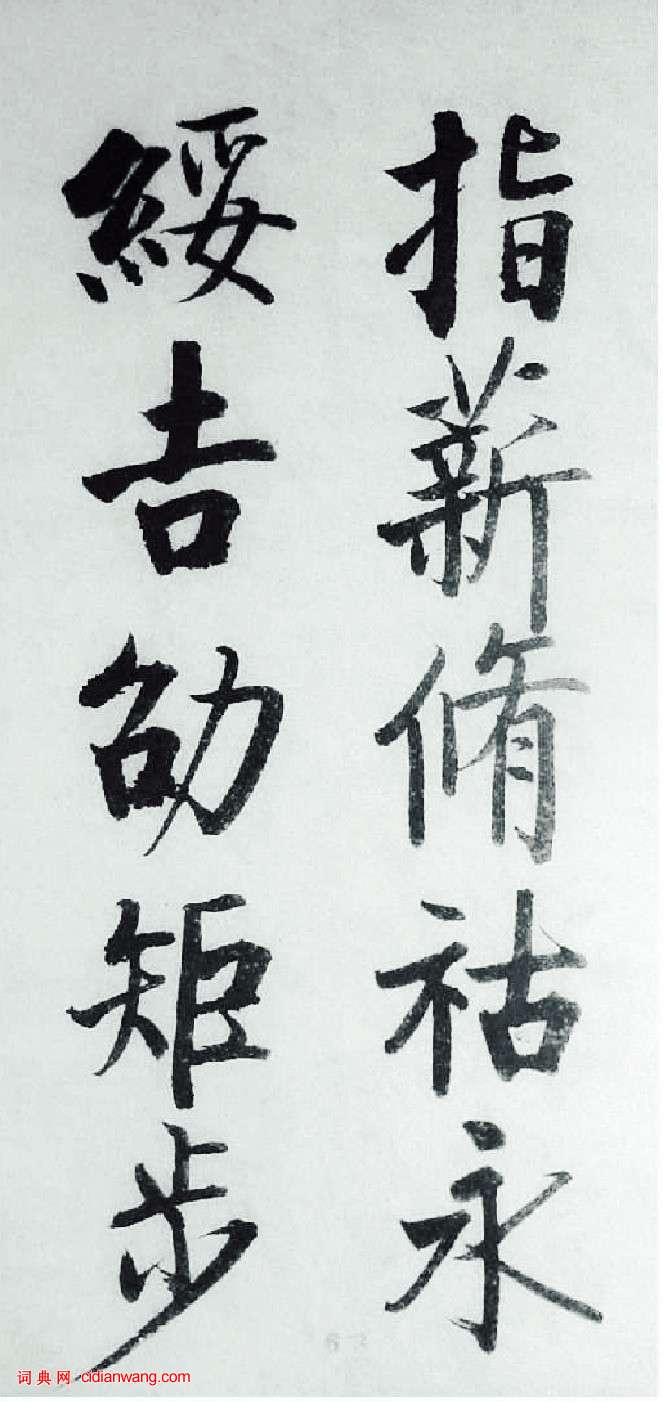 指薪脩祜永
綏吉劭矩步
词典网·cidianwang.com